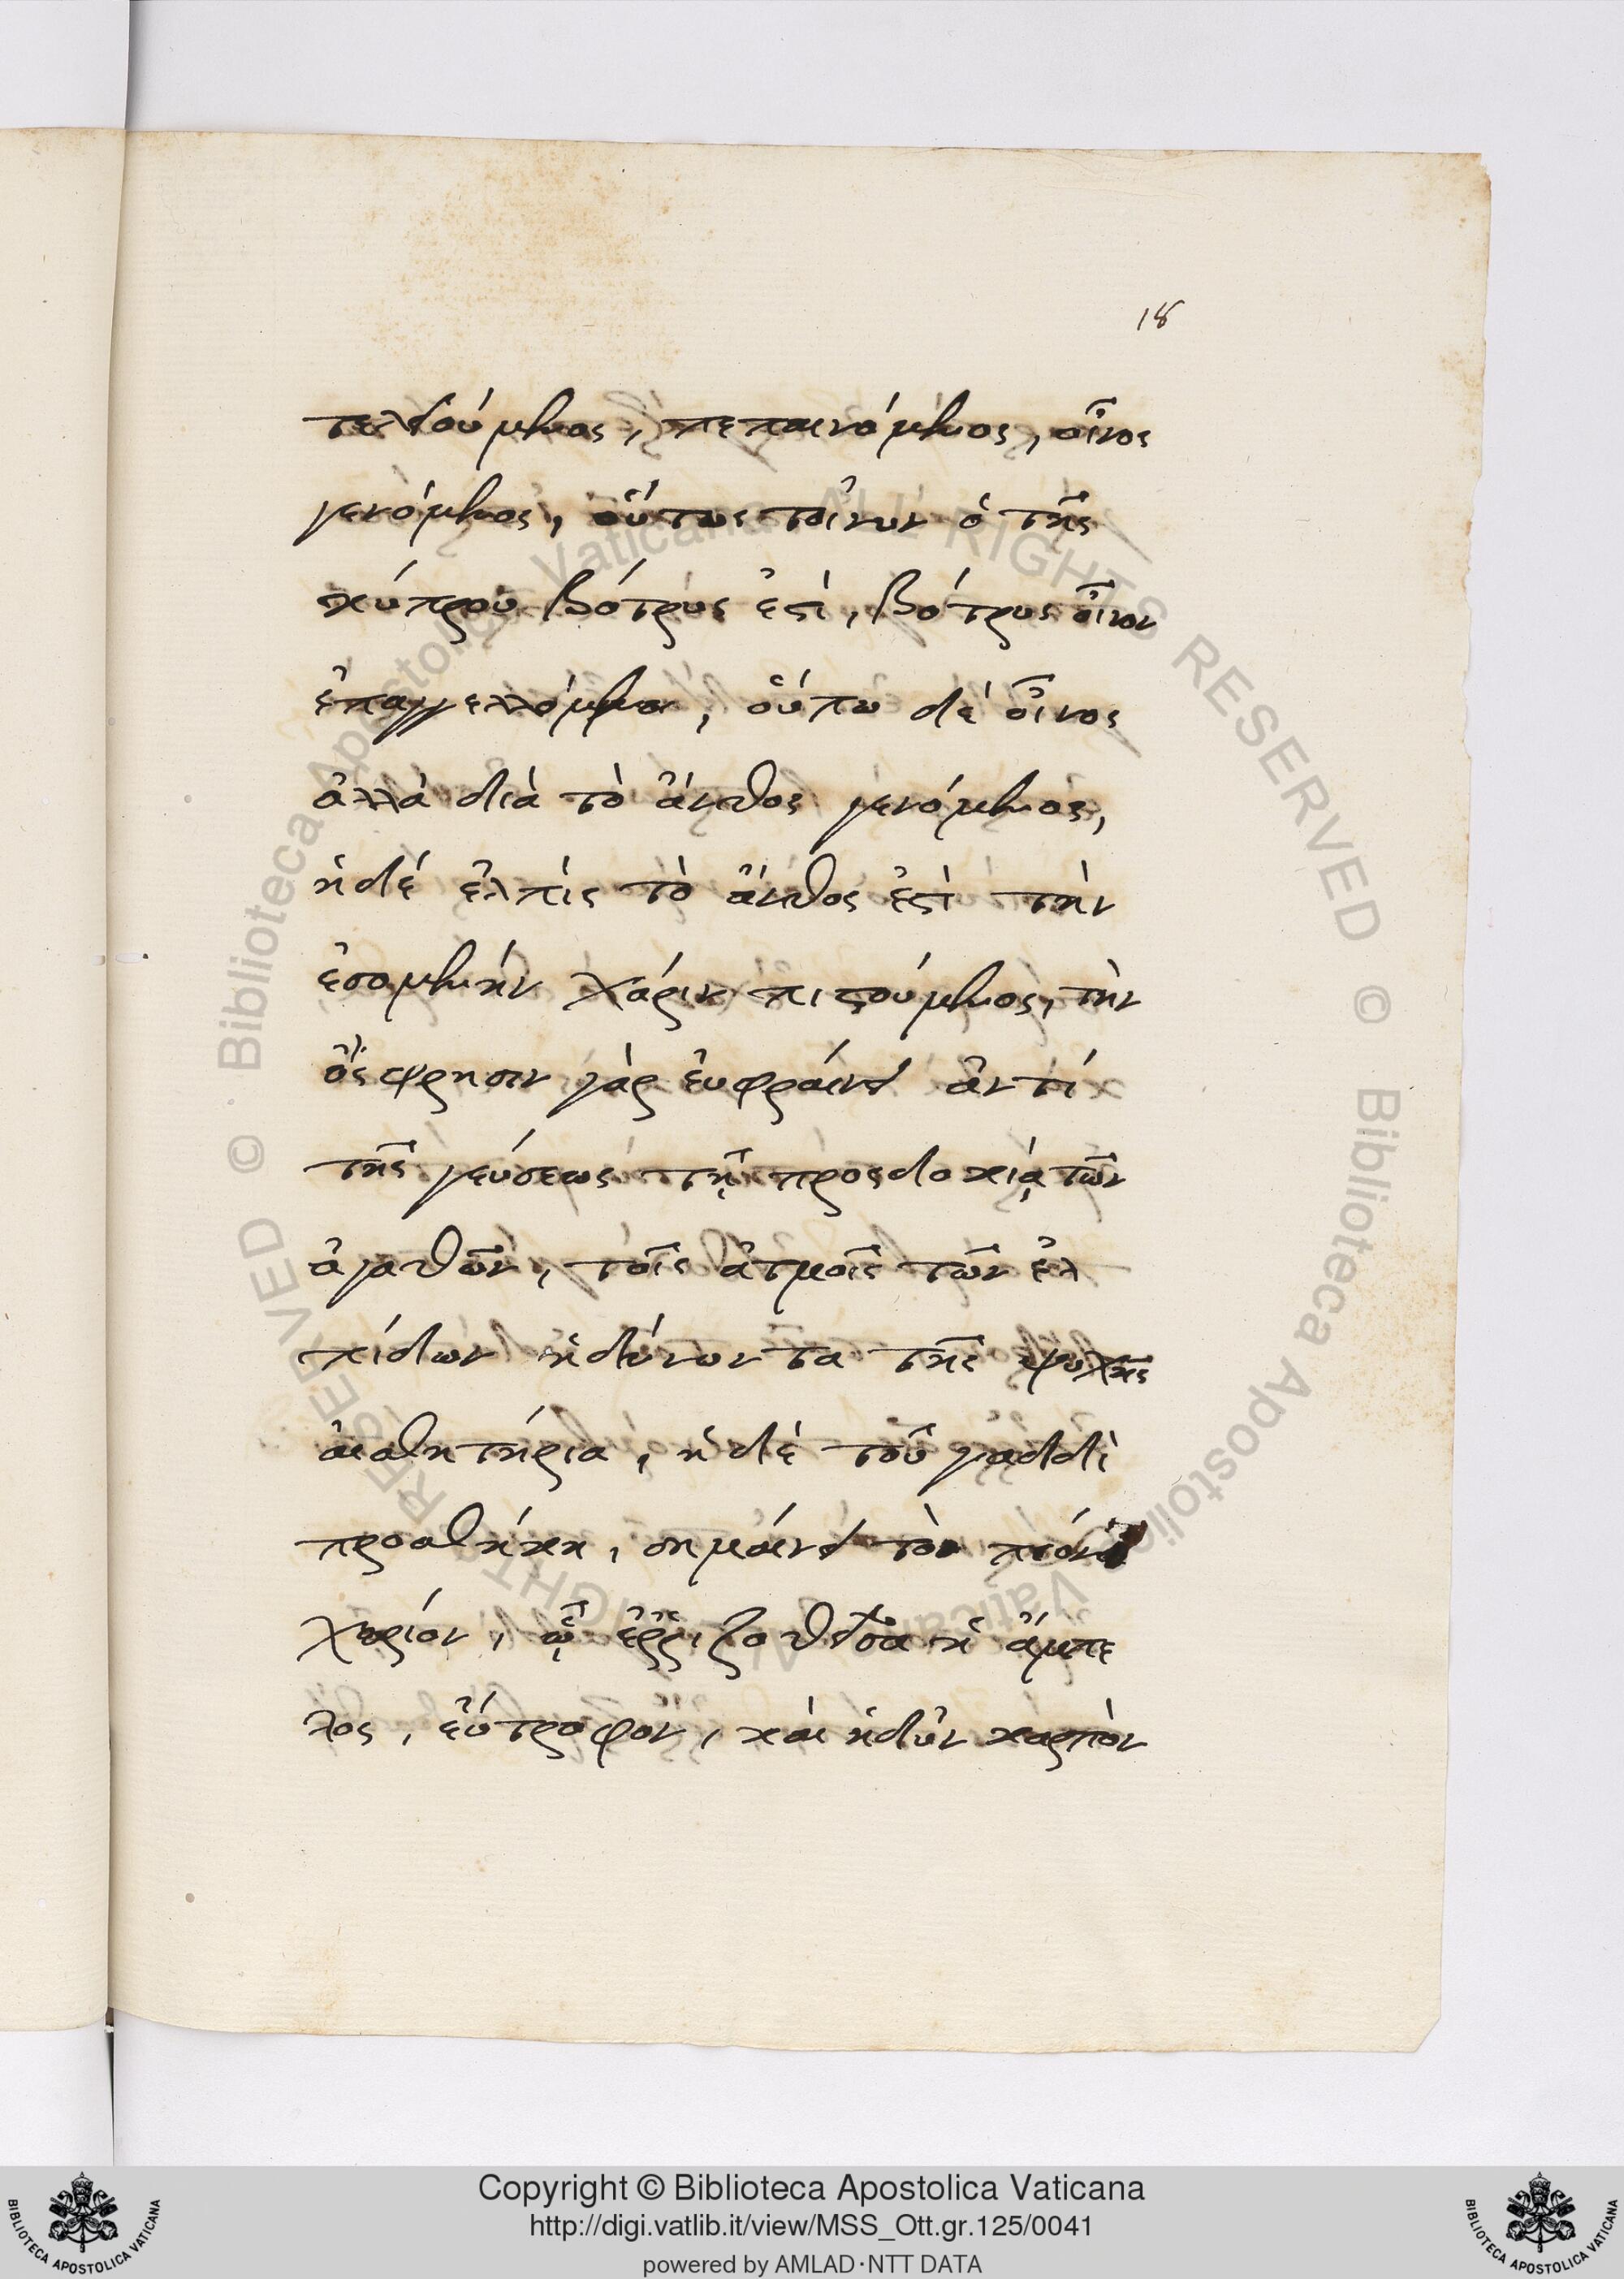 18
τελειούμενος, πεπαινόμενος, οἶνος
γενόμενος, οὕτως τοίνυν ὁ τῆς
κύπρου βότρυς ἐστὶ, βότρυς οἶνον
ἐπαγγελλόμενος, οὔπω δὲ οἶνος
ἀλλὰ διὰ τὸ ἄνθος γενόμενος,
ἡ δέ ἐλπὶς τὸ ἄνθος ἐστὶ τὴν
ἐσομένην χάριν πιστούμενος, τὴν
ὄσφρησιν γὰρ ἐυφραίνει ἀντί
τῆς γεύσεως τῇ προσδοκίᾳ τῶν
ἀγαθῶν, τοῖς ἀτμοῖς τῶν ἐλ
πίδων ἡδύνοντα τῆς ψυχῆς
αἰσθητήρια, ἡ δὲ τοῦ γαδδὶ
προσθήκη, σημαίνει τὸν πίονα
χωρίον, ᾧ ἐῤῥιζωθεῖσα ἡ ἄμπε
λος, εὔτροφον, καὶ ἡδὺν καρπὸν
Copyright © Biblioteca Apostolica Vaticana
http://digi.vatlib.it/view/MSS_Ott.gr.125/0041
powered by AMLAD·NTT DATA
BIBLIOTECA APOSTOLICA VATICANA
BIBLIOTECA APOSTOLICA VATICANA
© Biblioteca Apostolica Vaticana ALL RIGHTS RESERVED © Biblioteca Apostolica Vaticana ALL RIGHTS RESERVED